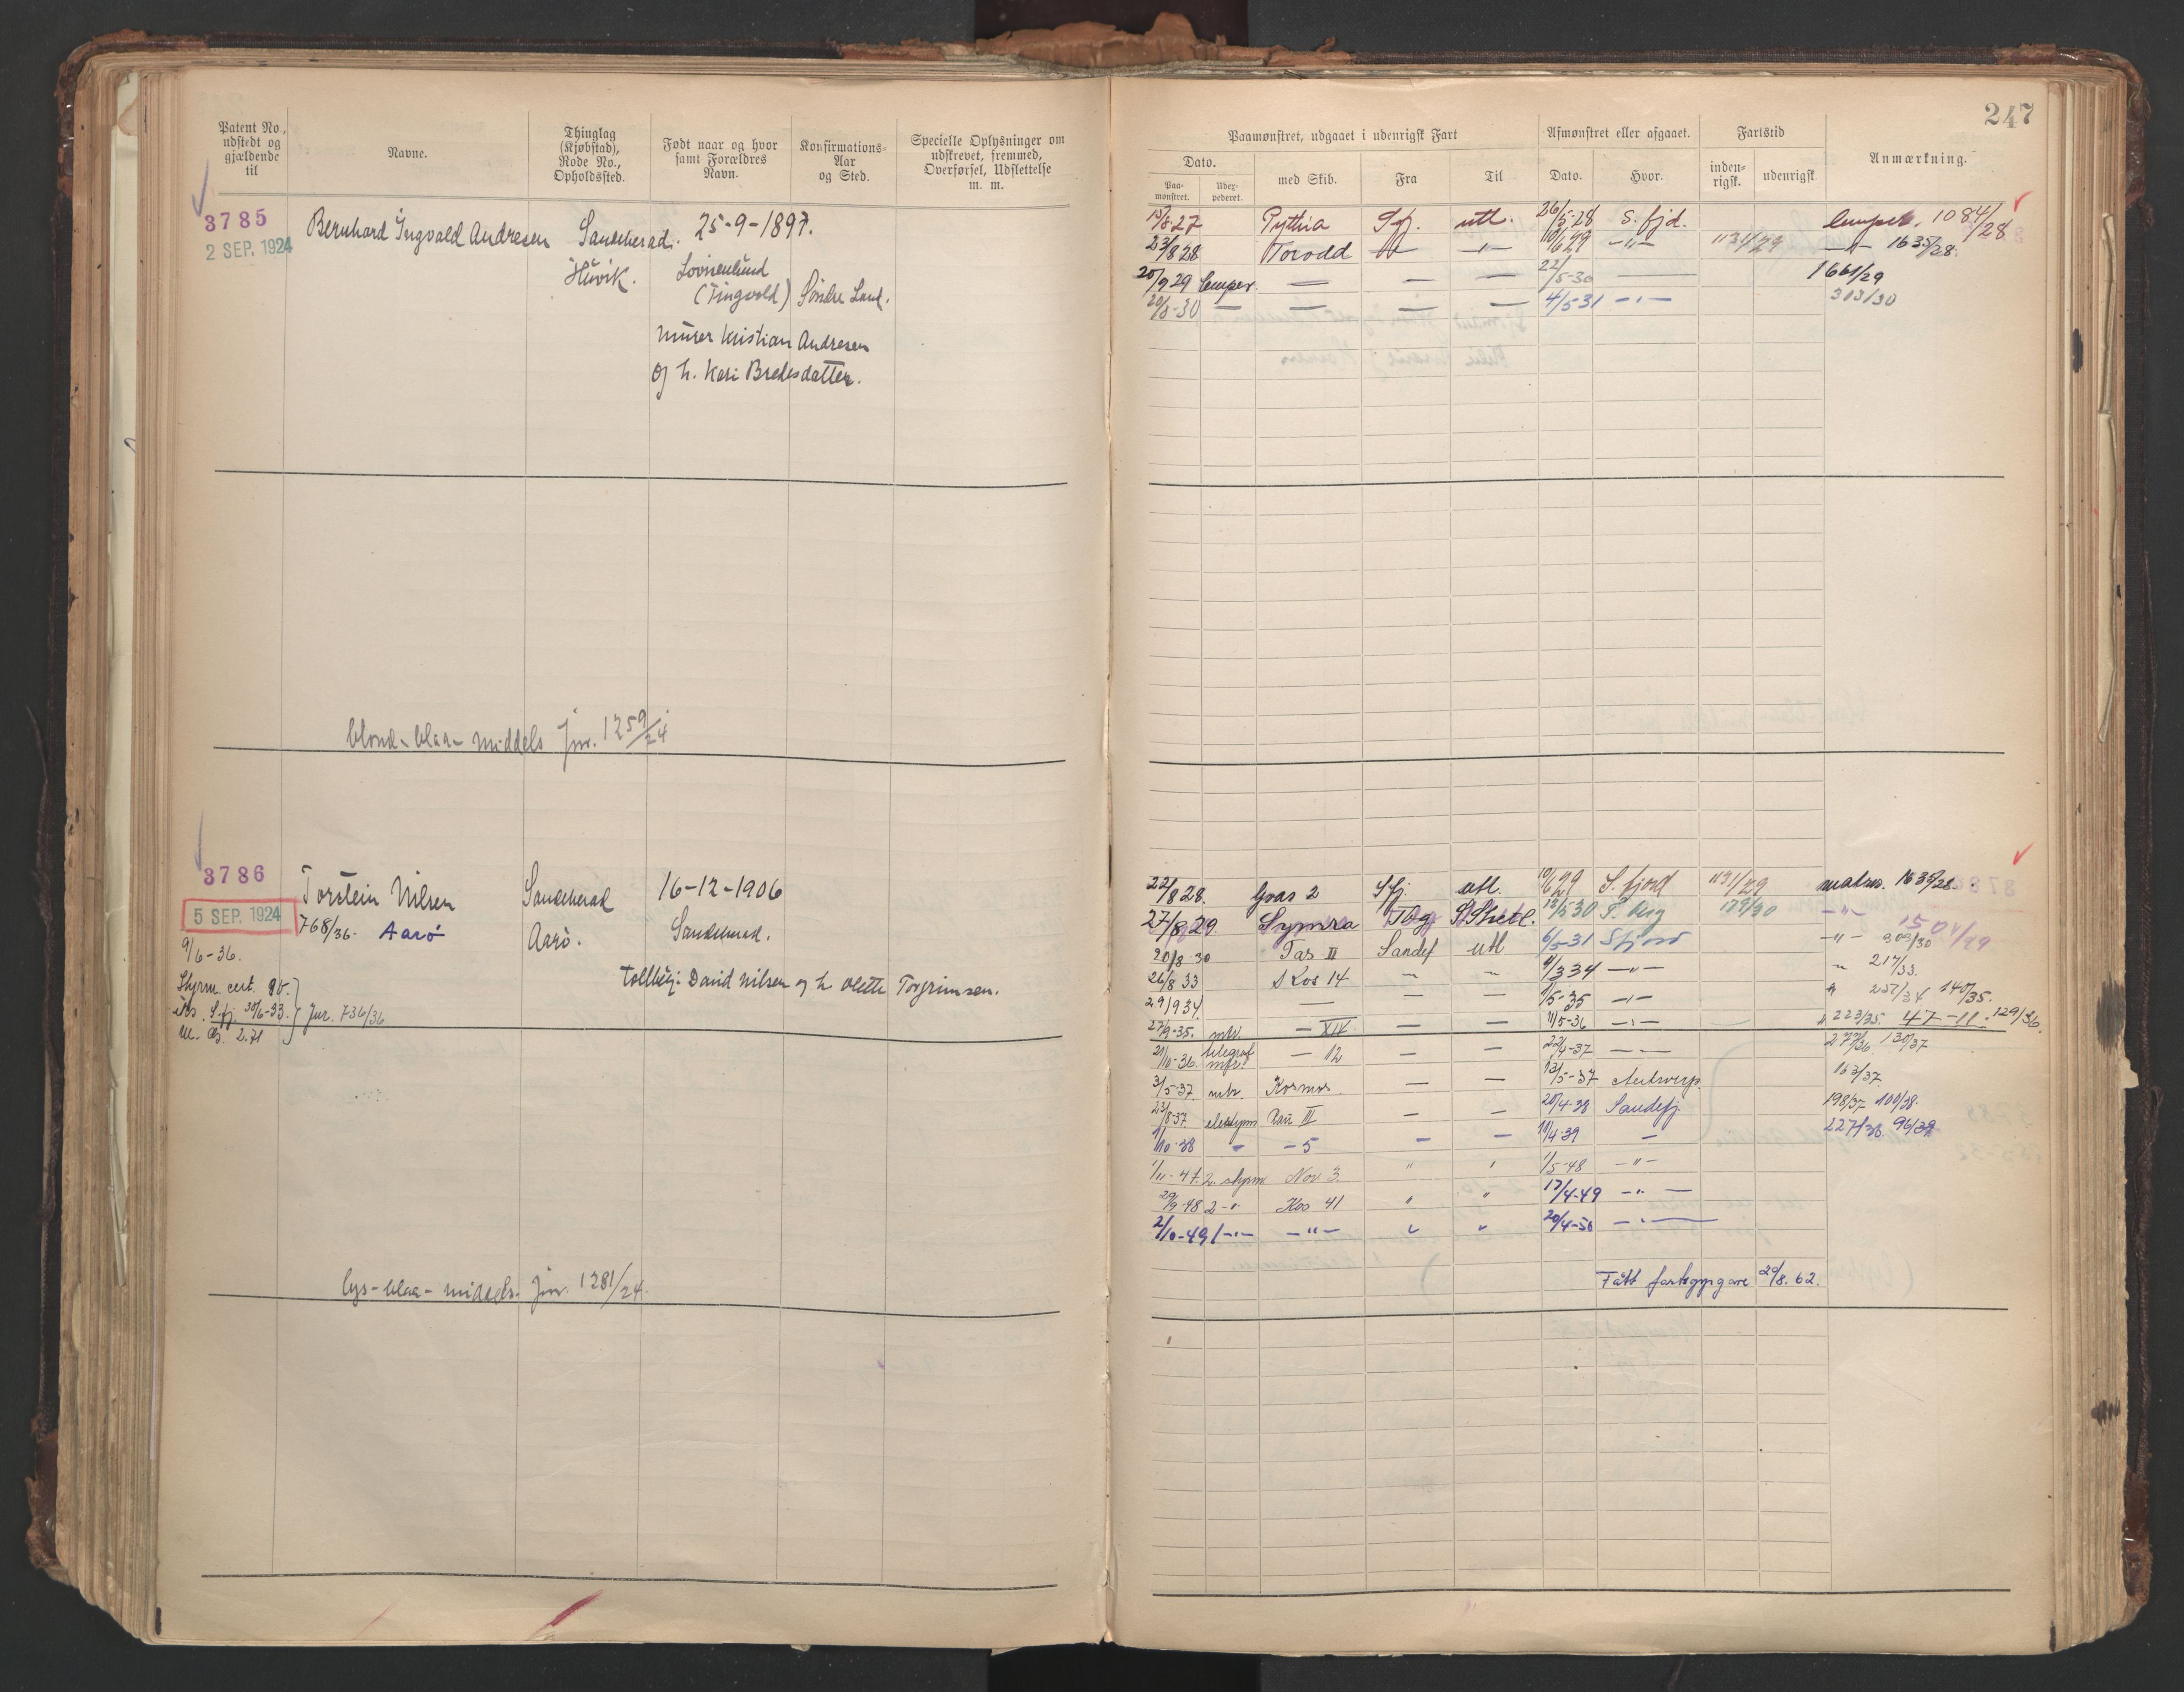 247
Patent No., udstedt og gjældende til
Navne.
Thinglag (Kjøbstad), Rode No., Opholdssted.
Født naar og hvor samt Forældres Navn.
Konfirmations-Aar og Sted.
Specielle Oplysninger om udskrevet, fremmed, Overførsel, Udslettelse m. m.
Paamønstret, udgaaet i udenrigsk Fart
Afmønstret eller afgaaet.
Fartstid
Anmærkning.
Dato.
med Skib.
Fra
Til
Dato.
Hvor.
inden-rigsk.
udenrigsk
Paa-mønstret.
Udex-pederet.
3785
2 SEP. 1924
Bernhard Ingvald Andresen
Sandeherad.
Huvik.
25-9-1897.
Lovisenlund
(Tingvold) Søndre Land.
murer Kristian Andresen
og h. Kari Bredesdatter.
blond - blaa - middels jnr. 1259/24
Pythia Sfj. utl. 26/5-28 S. fjd. 1084/28
23/8 28 Torodd — " — 10/6 29 — " — 1134/29 — " — 1635/28.
20/9 29 — — — 22/5-30 — 1661/29
20/8-30 — — — — 4/5-31 — " — 313/30
3786
5 SEP. 1924
Torstein Nilsen
768/36. Aarö
Sandeherad
Aarö.
16-12-1906
Sandeherad.
David Nilsen og h Olette Torgrimsen.
9/6-36.
Styrm. cert.
S.fj. 30/6-33. Jnr. 736/36
lys - blaa - middels. jnr. 1281/24.
22/8 28. Gras 2 Sfj. utl. 10/6 29 S. fjord 1131/29 matr. 1635/28
27/8 29 Symra Tbg S Shetl. 12/5 30 T. berg 179/30 — " — 1501/29
20/8-30 Tas III Sandef utl 6/5-31 Sfjord — " — 303/30
26/8 33 S Kos 14 — — 9/3 34 — " — " 217/33.
29/9 34. — — — 1/5-35 — " — " 252/34 140/35.
27/9-35. mtr. — XIV — — 11/5-36 — " — " 223/35. 47-11. 129/36.
21/10-36. telegraf mtr. — 12 — — 22/4-37 — " — 130/37
3/5-37. mtr. Kosmos — — 12/5-37 Antwerp. 163/37.
23/8-37. Rau III — — 20/4-38 Sandefj. 198/37 100/38.
1/10-38 " — 5 — — 11/4-39 — 227/38. 96/39
1/11-47. 2. styrm Nor 3. " " 1/5-48 — " —
29/9-48 2 — " Kos 41 " " 17/4-49 — " —
2/10-49 1 — " — — " — " " 20/4-50 — " —
Fått fartsoppgave 29/8. 62.